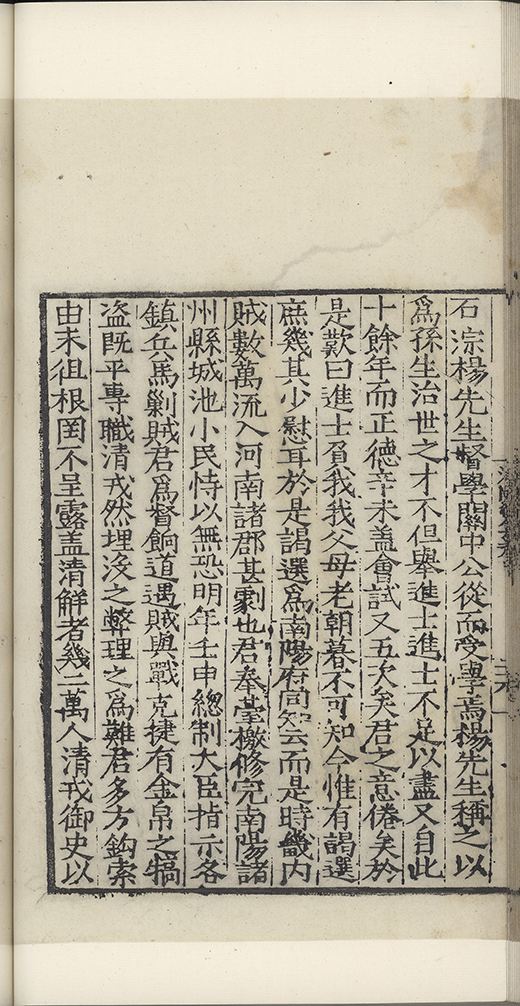 石淙楊先生督學關中公從而受學焉楊先生稱之以
爲孫生治世之才不但舉進士進士不足以盡又自此
十餘年而正德辛未盖會試又五次矣君之意倦矣於
是歎曰進士負我我父母老朝暮不可知今惟有謁選
庶幾其少慰耳於是謁選爲南陽府同知云而是時畿内
賊數萬流入河南諸郡甚劇也君奉臺檄修完南陽諸
州縣城池小民恃以無恐明年壬申緫制大臣指示各
鎮兵馬剿賊君爲督餉道遇賊與戰克捷有金帛之犒
盗既平專職清戎然埋没之弊理之爲難君多方鈎索
由末徂根罔不呈露盖清解者幾二萬人清戎御史以